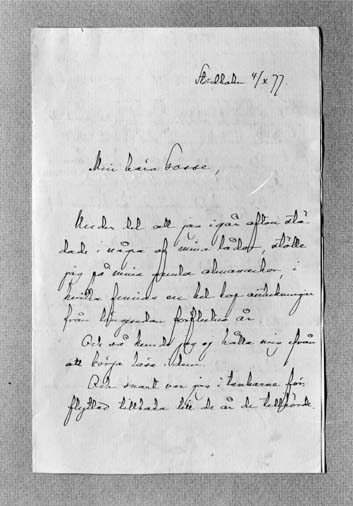 Stockholm 4/X 77.
Min kära Gosse,
Under det att jag igår afton stä-
dade i några af mina lådor, stötte
jag på mina gamla almanackor, i
hvilka finnas en hel hop anteckningar
från längesedan förflutna år.
Och så kunde jag ej hålla mig ifrån
att börja läsa i dem.
Och snart var jag i tankarne för-
flyttad tillbaka till de år de tillhörde.